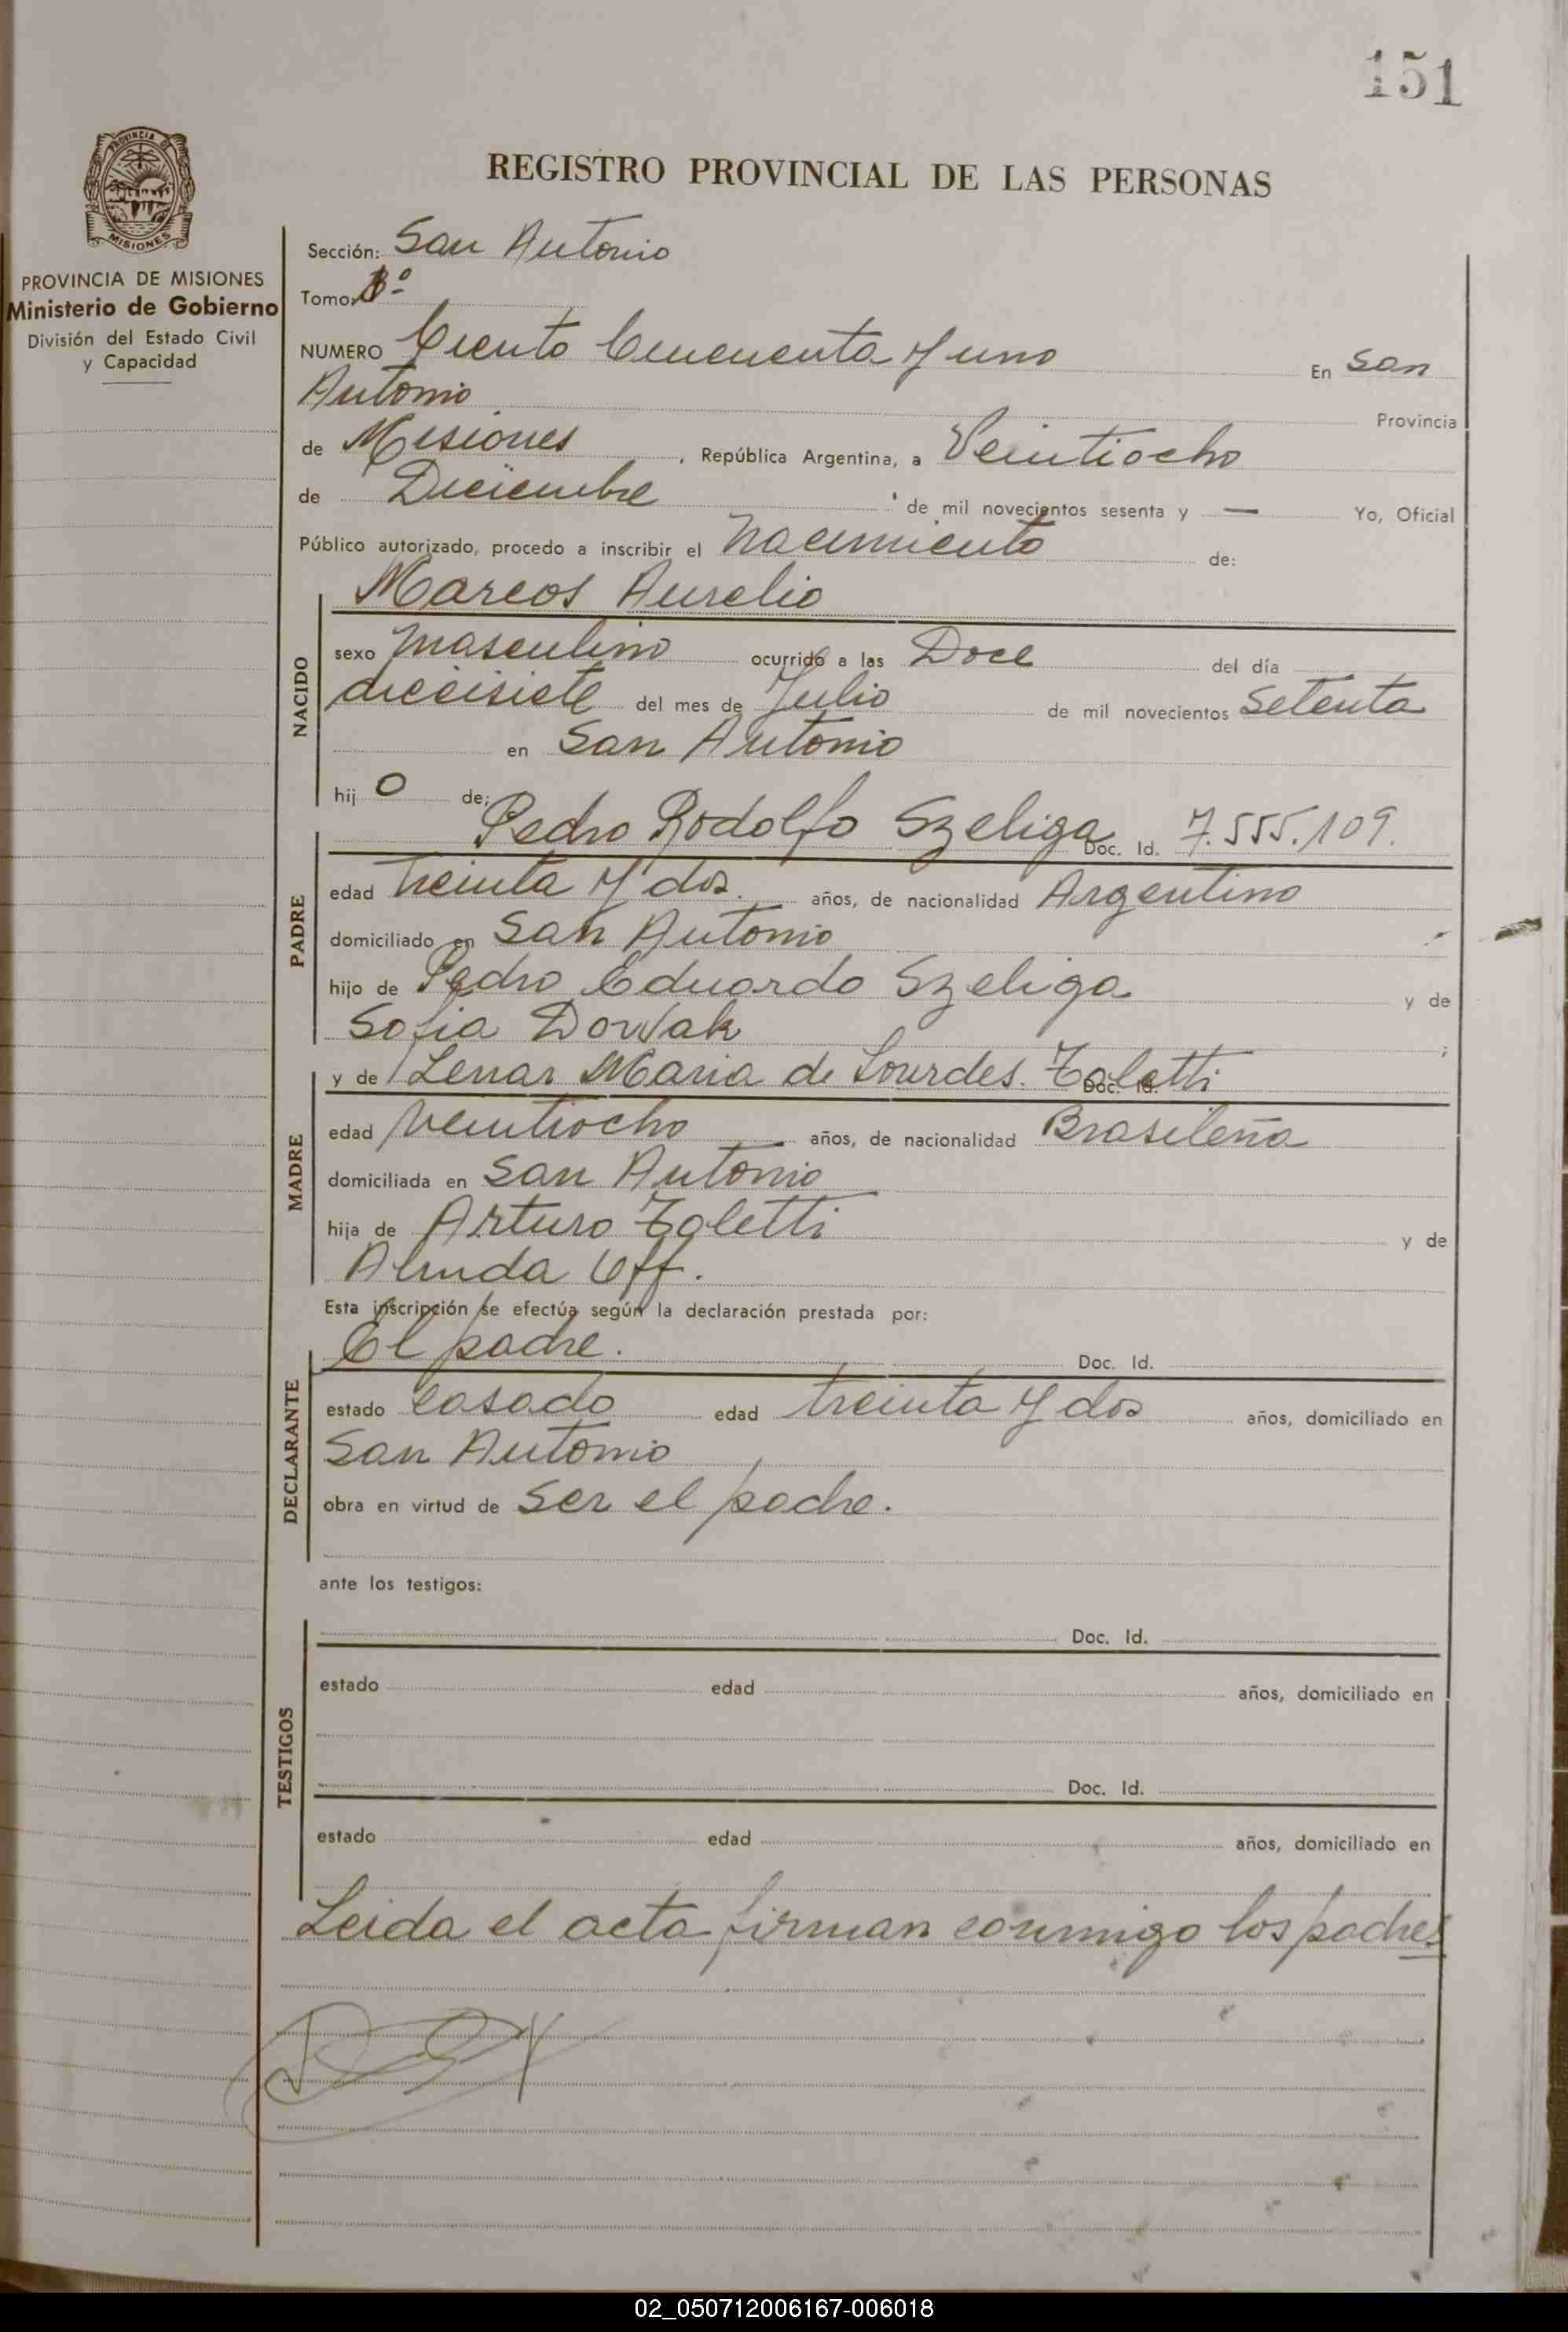 151
PROVINCIA DE MISIONES
REGISTRO PROVINCIAL DE LAS PERSONAS
PROVINCIA DE MISIONES
Ministerio de Gobierno
División del Estado Civil
y Capacidad
Sección: San Antonio
Tomo:
NUMERO Ciento Cincuenta y uno En San
Antonio Provincia
de Misiones, República Argentina, a Veintiocho
de Diciembre de mil novecientos sesenta y — Yo, Oficial
Público autorizado, procedo a inscribir el nacimiento de:
Marcos Aurelio
NACIDO
sexo masculino ocurrido a las Doce del día
diecisiete del mes de Julio de mil novecientos setenta
en San Antonio
hij o de:
Pedro Rodolfo Szeliga Doc. Id. 7.555.109.
PADRE
edad treinta y dos años, de nacionalidad Argentino
domiciliado en San Antonio
hijo de Pedro Eduardo Szeliga y de
Sofia Dowak ;
y de Lenar Maria de Lourdes Doc. Id.
MADRE
edad veintiocho años, de nacionalidad Brasileña
domiciliada en San Antonio
hija de Arturo y de
Uff.
Esta inscripción se efectúa según la declaración prestada por:
El padre. Doc. Id.
DECLARANTE
estado casado edad treinta y dos años, domiciliado en
San Antonio
obra en virtud de ser el padre.
ante los testigos:
TESTIGOS
Doc. Id.
estado edad años, domiciliado en
Doc. Id.
estado edad años, domiciliado en
Leida el acta firman conmigo los padres
02_050712006167-006018